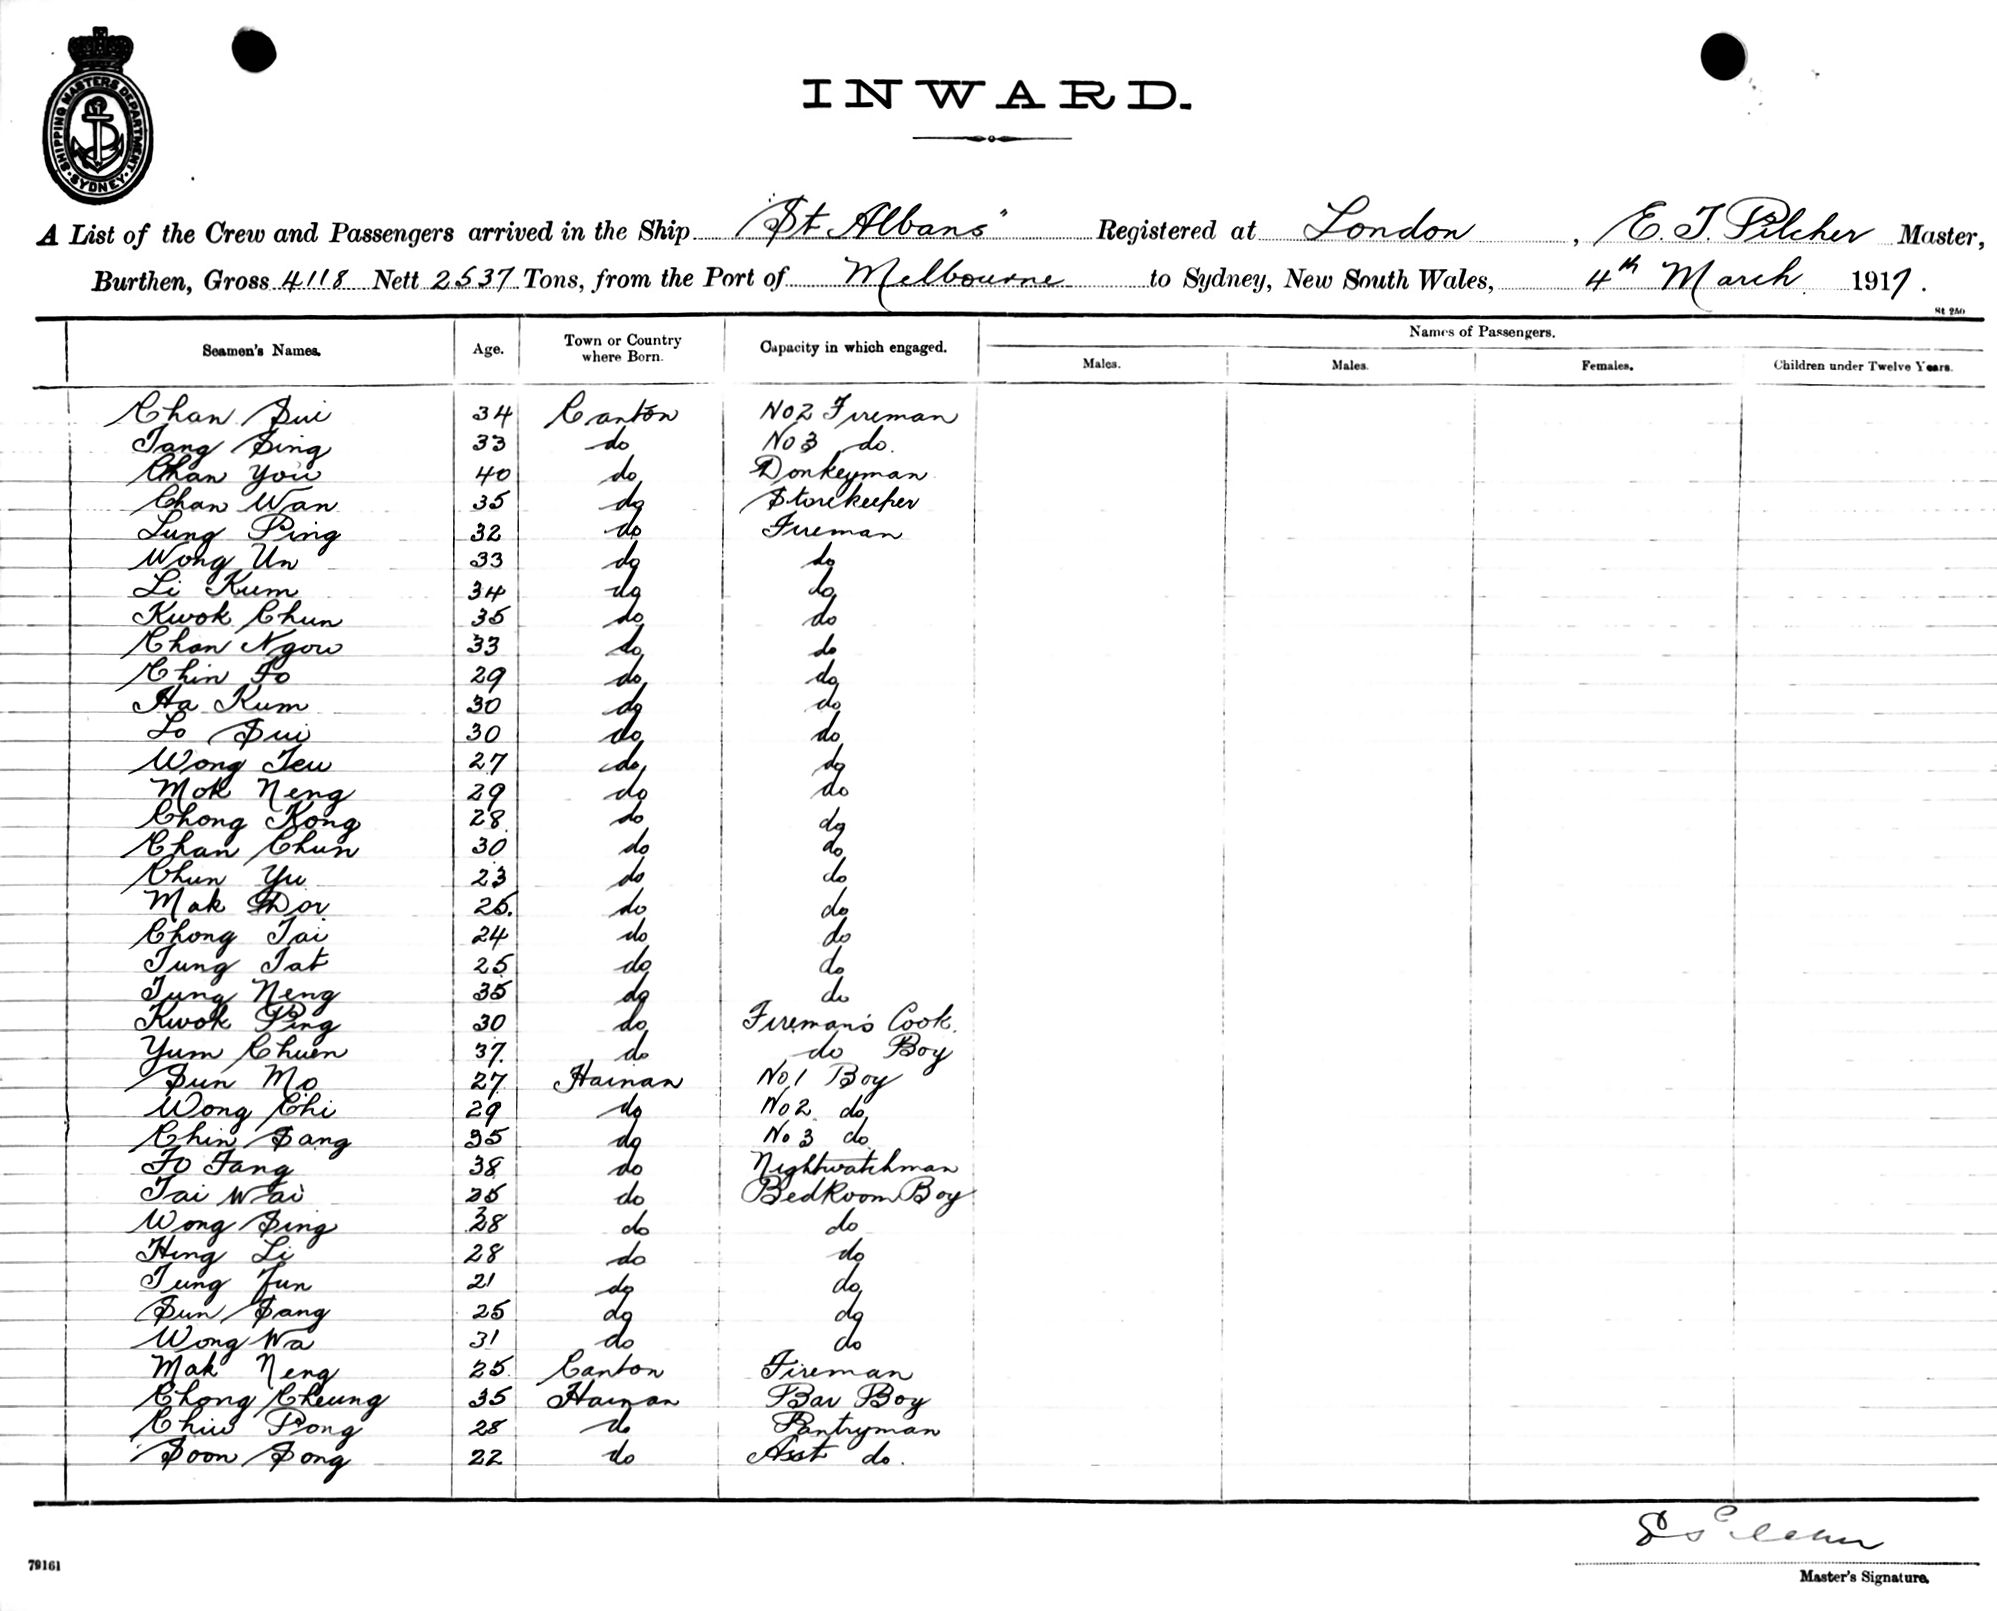 SHIPPING MASTERS DEPARTMENT
SYDNEY
INWARD.
A List of the Crew and Passengers arrived in the Ship "St Albans" Registered at London, E. J. Pilcher Master,
Burthen, Gross 4118 Nett 2537 Tons, from the Port of Melbourne to Sydney, New South Wales, 4th March 1917.
St 250
Seamen's Names. Age. Town or Country where Born. Capacity in which engaged. Names of Passengers.
Males. Males. Females. Children under Twelve Years.
Chan Sui 34 Canton No 2 Fireman
Tang Sing 33 do No 3 do.
Chan You 40 do Donkeyman
Chan Wan 35 do Storekeeper
Lung Ping 32 do Fireman
Wong Un 33 do do
Li Kum 34 do do
Kwok Chun 35 do do
Chan Ngow 33 do do
Chin Fo 29 do do
Ha Kum 30 do do
Lo Sui 30 do do
Wong Teu 27 do do
Mok Neng 29 do do
Chong Kong 28 do do
Chan Chun 30 do do
Chun Yu 23 do do
Mak 25. do do
Chong Tai 24 do do
Tung Tat 25 do do
Tung Neng 35 do do
Kwok Ping 30 do Fireman's Cook.
Yum Chuen 37. do do Boy
Sun Mo 27 Hainan No. 1 Boy
Wong Chi 29 do No 2 do
Chin Sang 35 do No 3 do
Fo Fang 38 do Nightwatchman
Tai Wai 25 do BedRoom Boy
Wong Sing 28 do do
Hing Li 28 do do
Tung Fun 21 do do
Sun Sang 25 do do
Wong Wa 31 do do
Mak Neng 25 Canton Fireman
Chong Cheung 35 Hainan Bar Boy
Chiu Pong 28 do Pantryman
Soon Song 22 do Asst do.
79161
Master's Signature.